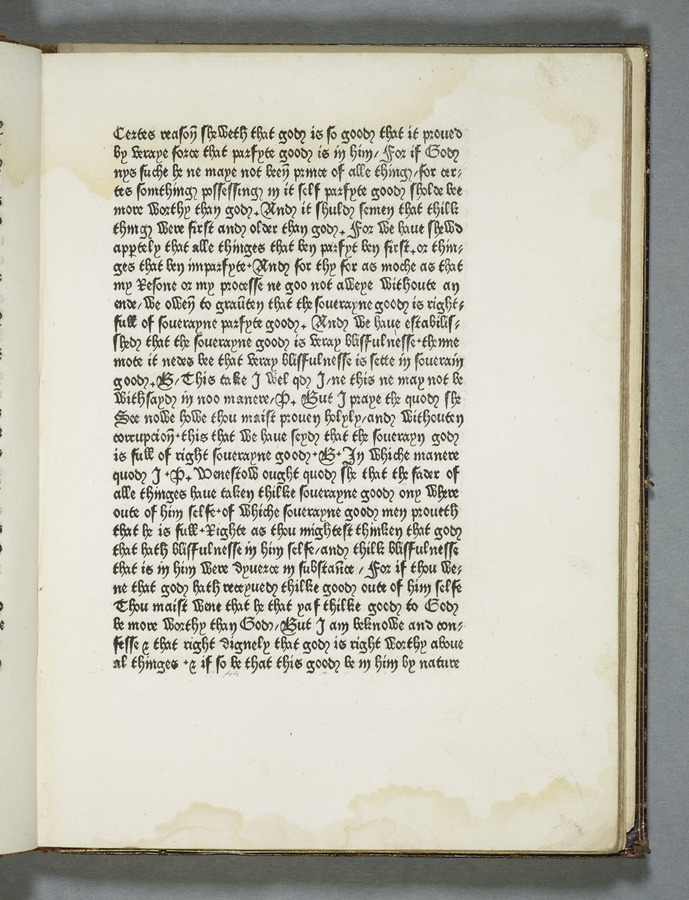 Certes reason sheweth that god is so good that it proued
by veraye force that parfyte good is in him / For if God
nys suche he ne maye not been prince of alle thing / for cer⸗
tes somthing possessing in it self parfyte good sholde bee
more worthy than god . And it shuld semen that thilk
thing were first and older than god . For we haue shewd
appertely that alle thinges that ben parfyt ben first . or thin⸗
ges that ben imparfyte · And for thy for as moche as that
my Resone or my processe ne goo not aweye withoute an
ende / we owen to graūten that the souerayne good is right⸗
full of souerayne parfyte good . And we haue establis⸗
shed that the souerayne good is veray blissfulnesse · thenne
mote it nedes bee that veray blissfulnesse is sette in souerain
good . B / This take I wel qd I / ne this ne may not be
withsayd in noo manere / P . But I praye the quod she
See nowe howe thou maist prouen holyly / and withouten
corrupcioñ · this that we haue seyd that the souerayn god
is full of right souerayne good · B · In whiche manere
quod I · P . Wenestow ought quod she that the fader of
alle thinges haue taken thilke souerayne good ony where
oute of him selfe · of whiche souerayne good men proueth
that he is full · Righte as thou mightest thinken that god
that hath blissfulnesse in him selfe / and thilk blissfulnesse
that is in him were dyuerce in substāce / For if thou we⸗
ne that god hath receyued thilke good oute of him selfe
Thou maist wene that he that yaf thilke good to God
be more worthy than God / But I am beknowe and con⸗
fesse & that right dignely that god is right worthy aboue
al thinges · & if so be that this good be in him by nature